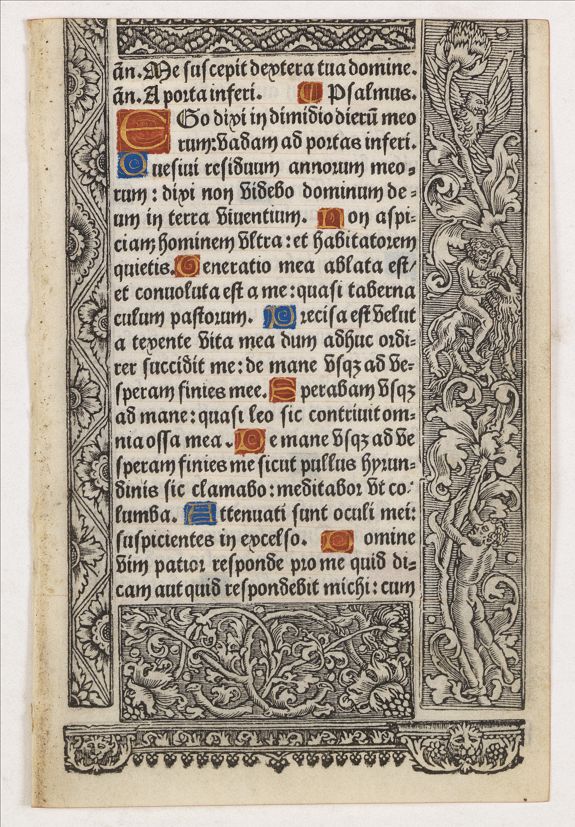 añ. Me suscepit dextera tua domine.
añ. A porta inferi. Psalmus.
EGo dixi in dimidio dierū meo
rum: vadam ad portas inferi.
Quesiui residuum annorum meo⸗
rum: dixi non videbo dominum de⸗
um in terra viuentium. Non aspi⸗
ciam hominem vltra: et habitatorem
quietis. Generatio mea ablata est/
et conuoluta est a me: quasi taberna
culum pastorum. Precisa est velut
a texente vita mea dum adhuc ordi⸗
rer succidit me: de mane vsqꝫ ad ve⸗
speram finies mee. Sperabam vsqꝫ
ad mane: quasi leo sic contriuit om⸗
nia ossa mea. De mane vsqꝫ ad ve
speram finies me sicut pullus hyrun⸗
dinis sic clamabo: meditabor vt co⸗
lumba. Attenuati sunt oculi mei:
suspicientes in excelso. Domine
vim patior responde pro me quid di⸗
cam aut quid respondebit michi: cum